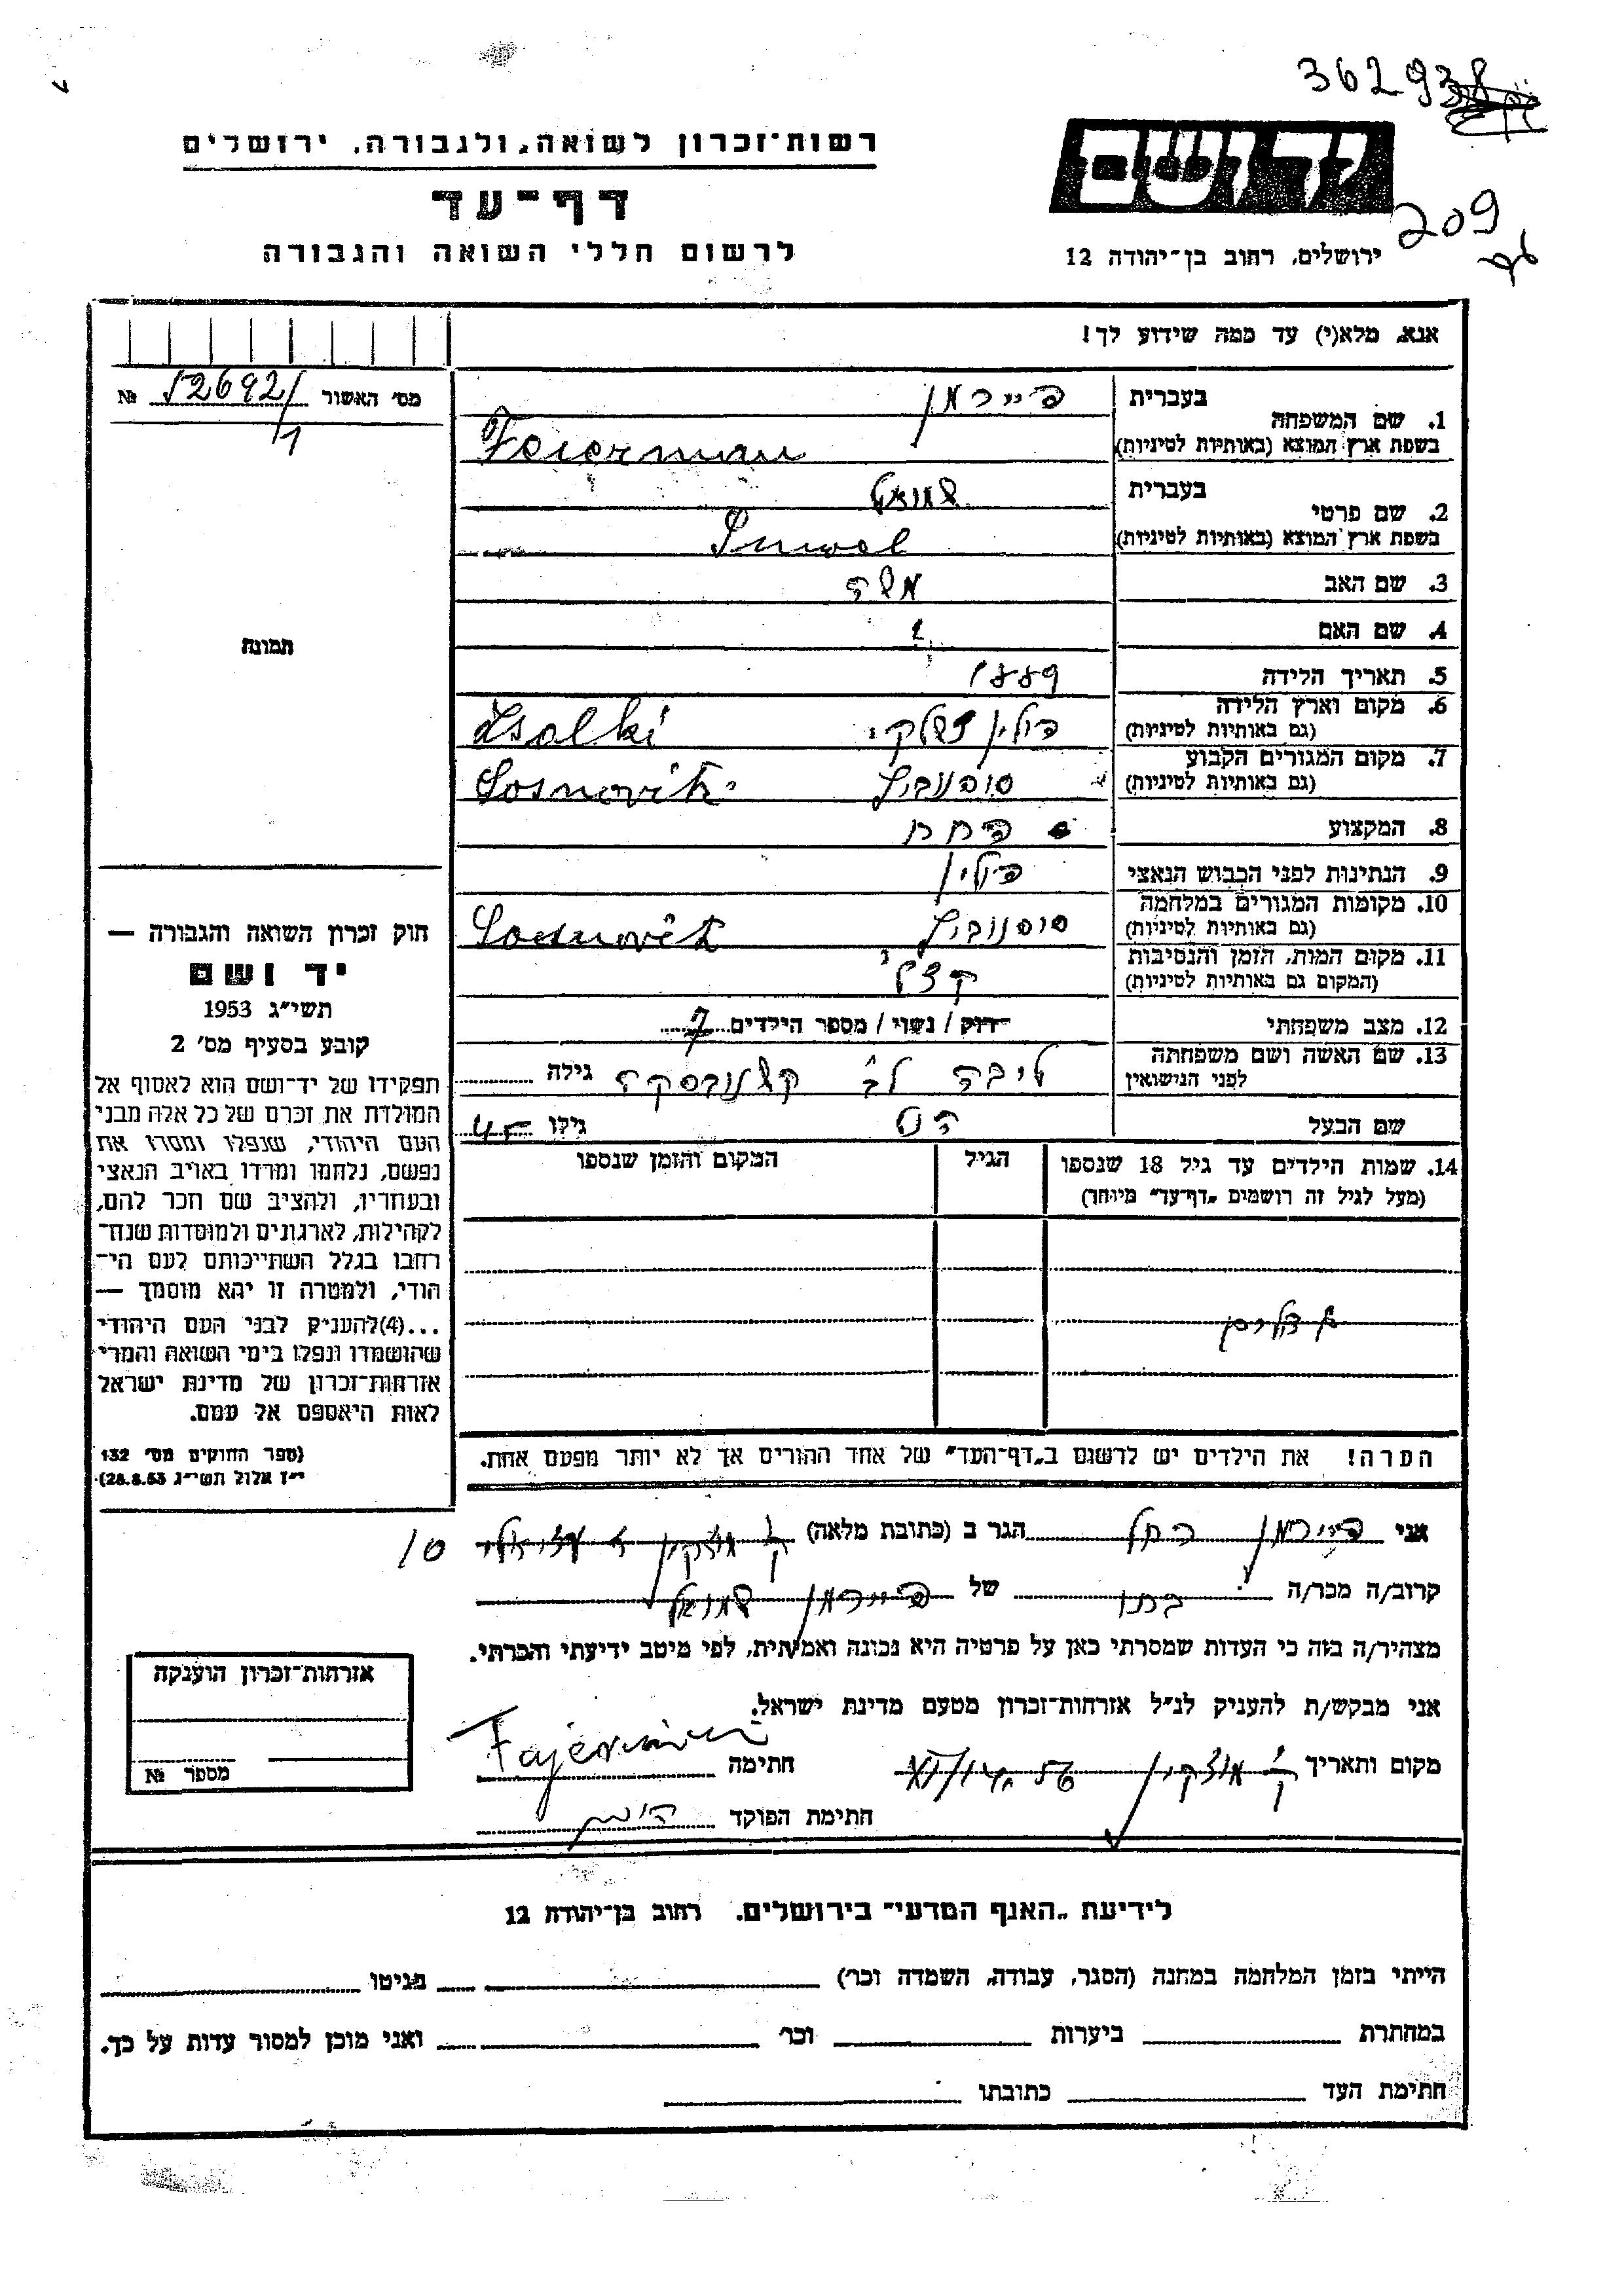 362938
רשות־זכרון לשואה ולגבורה, ירושלים
דף־עד
לרשום חללי השואה והגבורה
יד ושם
209
ירושלים, רחוב בן־יהודה 12
אנא, מלא(י) עד כמה שידוע לך!
מס' האשור № 52692/1
1. שם המשפחה
בעברית פיירמן
בשפת ארץ המוצא (באותיות לטיניות) Feierman
2. שם פרטי
בעברית שמואל
בשפת ארץ המוצא (באותיות לטיניות)
3. שם האב משה
4. שם האם
5. תאריך הלידה 1889
6. מקום וארץ הלידה
(גם באותיות לטיניות) פולין
7. מקום המגורים הקבוע
(גם באותיות לטיניות) סוסנוביץ
8. המקצוע
9. הנתינות לפני הכבוש הנאצי פולין
10. מקומות המגורים במלחמה
(גם באותיות לטיניות) סוסנוביץ
11. מקום המות, הזמן והנסיבות
(המקום גם באותיות לטיניות)
12. מצב משפחתי רווק / נשוי / מספר הילדים 7
13. שם האשה ושם משפחתה
לפני הנישואין ליבה לב' גילה
שם הבעל גילו
14. שמות הילדים עד גיל 18 שנספו
(מעל לגיל זה רושמים „דף־עד" מיוחד)
הגיל
המקום והזמן שנספו
תמונה
חוק זכרון השואה והגבורה —
יד ושם
תשי"ג 1953
קובע בסעיף מס' 2
תפקידו של יד־ושם הוא לאסוף אל
המולדת את זכרם של כל אלה מבני
העם היהודי, שנפלו ומסרו את
נפשם, נלחמו ומרדו באויב הנאצי
ובעוזריו, ולהציב שם וזכר להם,
לקהילות, לארגונים ולמוסדות שנח־
רבו בגלל השתייכותם לעם הי־
הודי, ולמטרה זו יהא מוסמך —
...(4)להעניק לבני העם היהודי
שהושמדו ונפלו בימי השואה והמרי
אזרחות־זכרון של מדינת ישראל
לאות היאספם אל עמם.
(ספר החוקים מס' 132
י"ז אלול תשי"ג 28.8.53)
הערה! את הילדים יש לרשום ב„דף־העד" של אחד ההורים אך לא יותר מפעם אחת.
אני פיירמן רחל הגר ב (כתובת מלאה) ק. מוצקין 10
קרוב/ה מכר/ה של פיירמן שמואל
מצהיר/ה בזה כי העדות שמסרתי כאן על פרטיה היא נכונה ואמיתית, לפי מיטב ידיעתי והכרתי.
אני מבקש/ת להעניק לנ"ל אזרחות־זכרון מטעם מדינת ישראל.
מקום ותאריך ק. מוצקין חתימה
חתימת הפוקד
אזרחות־זכרון הוענקה
מספר №
לידיעת „האגף המדעי" בירושלים. רחוב בן־יהודה 12
הייתי בזמן המלחמה במחנה (הסגר, עבודה, השמדה וכו') בגיטו
במחתרת ביערות וכו' ואני מוכן למסור עדות על כך.
חתימת העד כתובתו